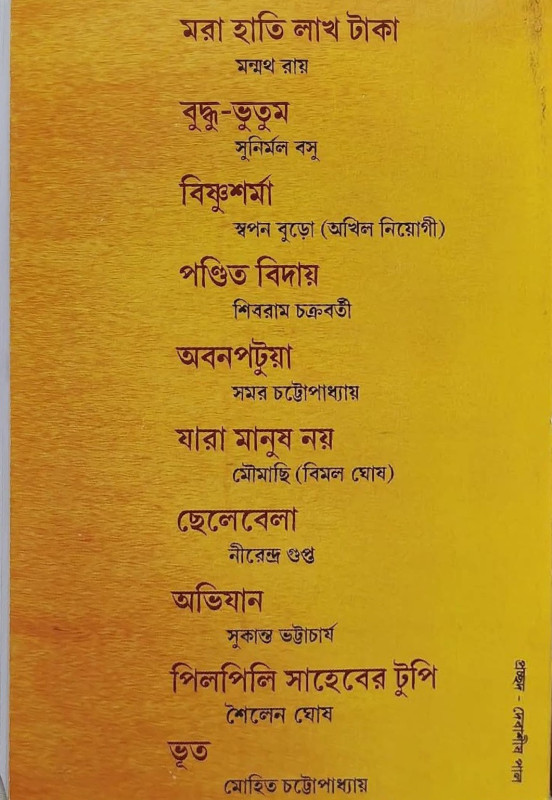 মরা হাতি লাখ টাকা
মন্মথ রায়
বুদ্ধু-ভুতুম
সুনির্মল বসু
বিষ্ণুশর্মা
স্বপন বুড়ো (অখিল নিয়োগী)
পণ্ডিত বিদায়
শিবরাম চক্রবর্তী
অবনপটুয়া
সমর চট্টোপাধ্যায়
যারা মানুষ নয়
মৌমাছি (বিমল ঘোষ)
ছেলেবেলা
নীরেন্দ্র গুপ্ত
অভিযান
সুকান্ত ভট্টাচার্য
পিলপিলি সাহেবের টুপি
শৈলেন ঘোষ
ভূত
মোহিত চট্টোপাধ্যায়
প্রচ্ছদ - দেবাশীষ পাল